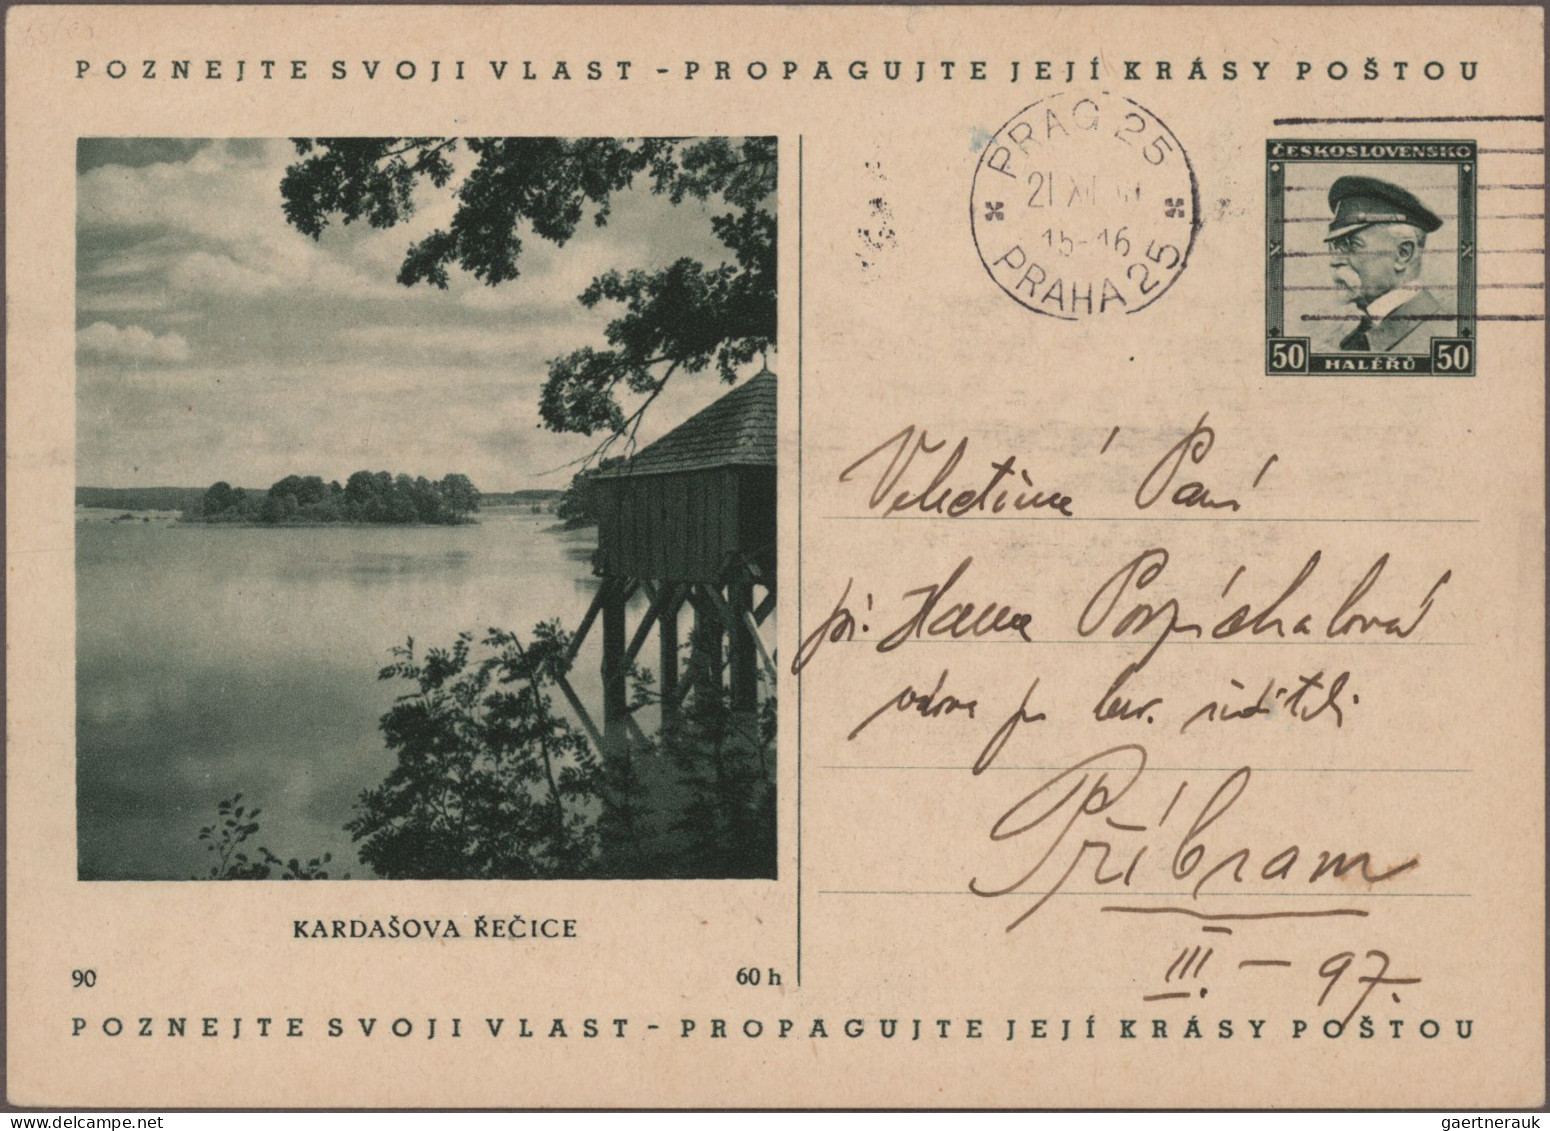 POZNEJTE SVOJI VLAST - PROPAGUJTE JEJÍ KRÁSY POŠTOU
PRAG 25
21 XII
15-16
PRAHA 25
ČESKOSLOVENSKO
50 HALÉŘŮ 50
Paní
Hana
vdova po
Příbram
III. - 97.
KARDAŠOVA ŘEČICE
90 60 h
POZNEJTE SVOJI VLAST - PROPAGUJTE JEJÍ KRÁSY POŠTOU
gaertnerauk